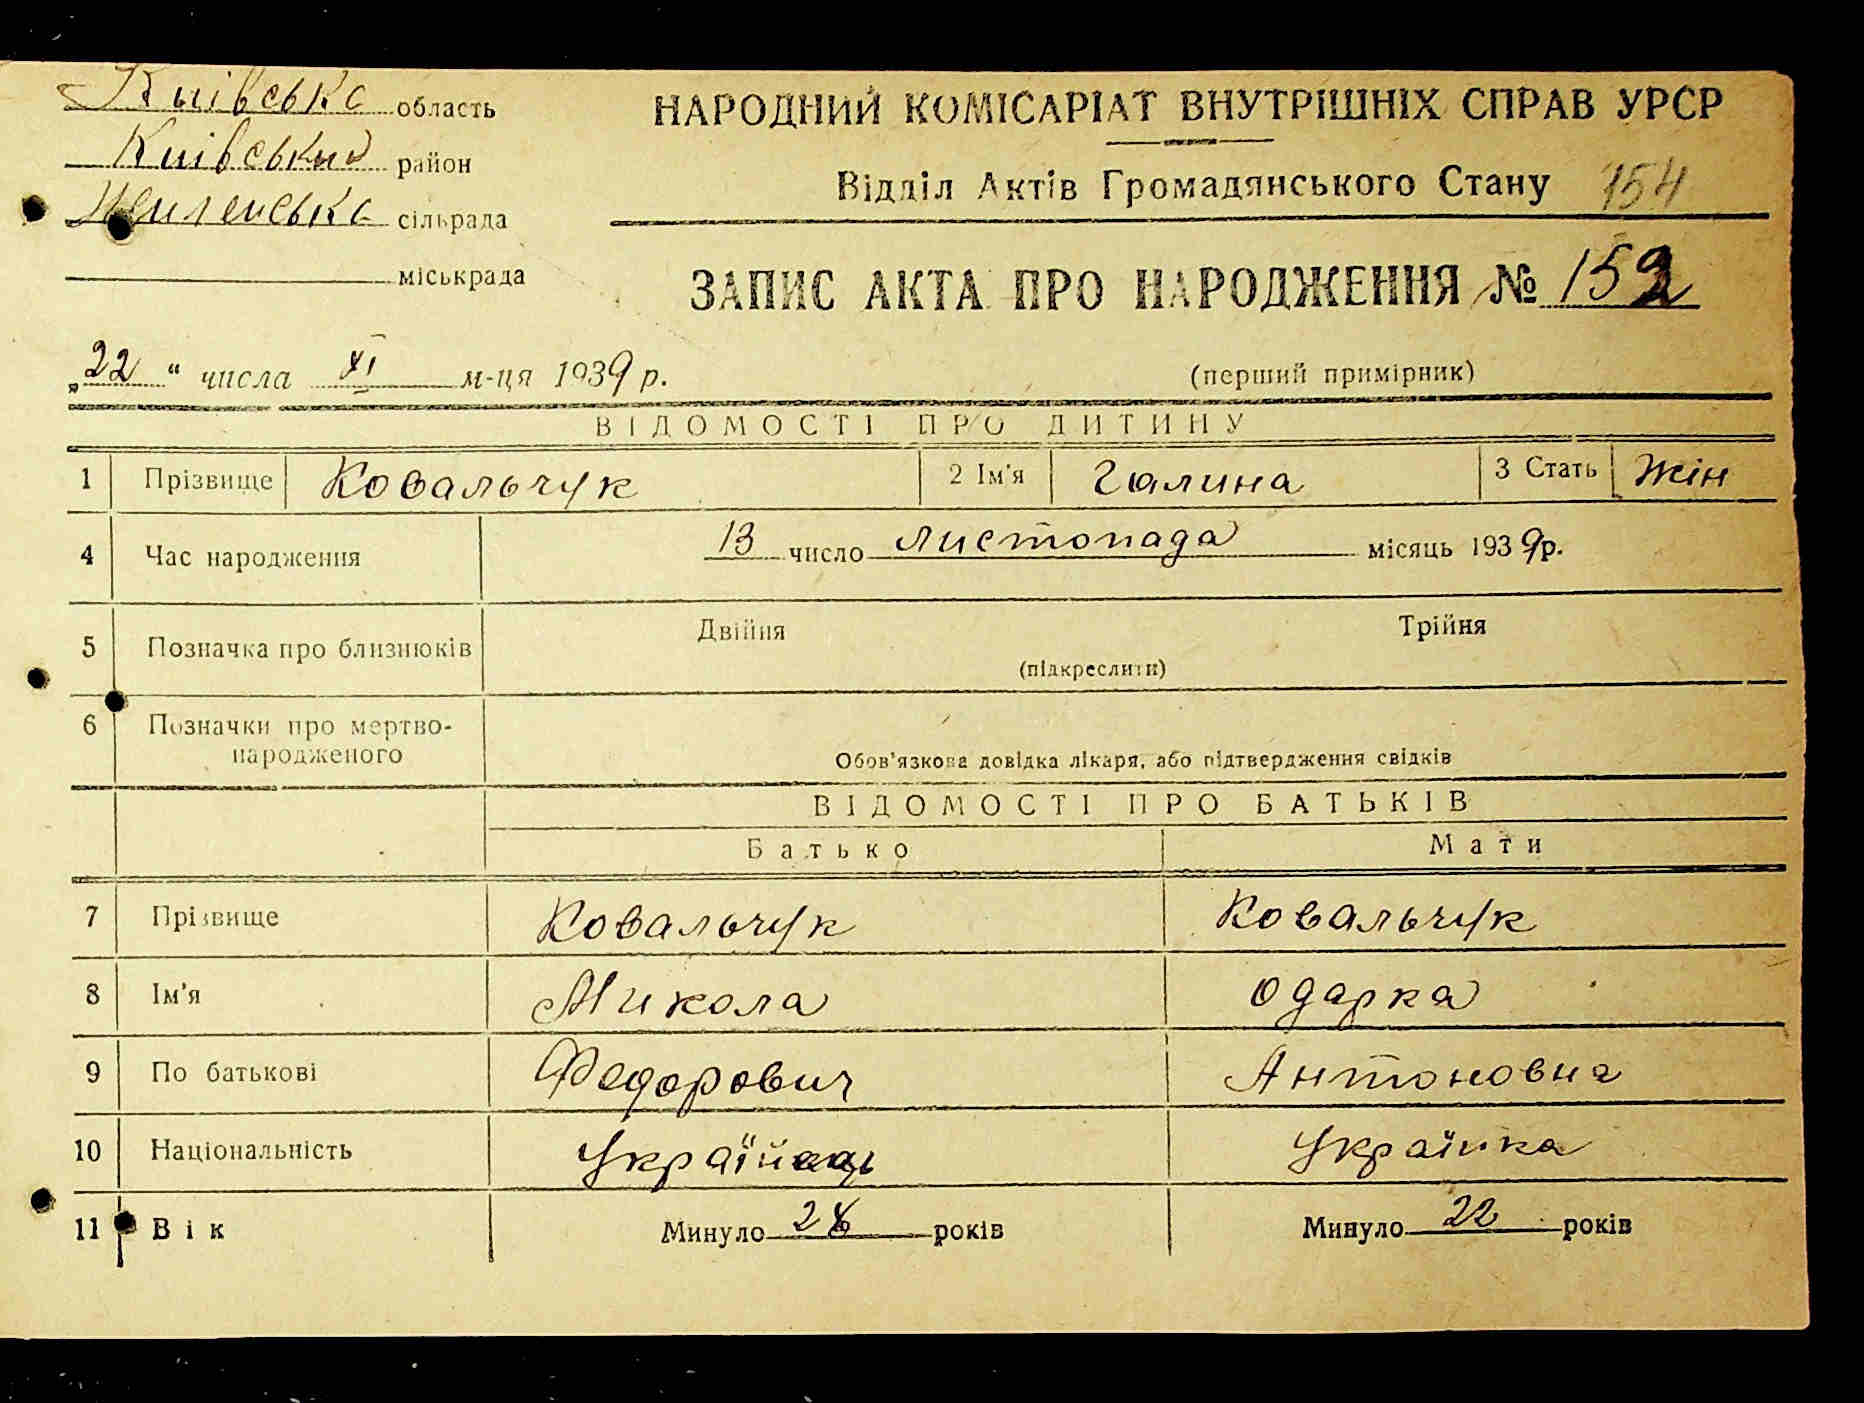 Київська область
Київський район
сільрада
міськрада
НАРОДНИЙ КОМІСАРІАТ ВНУТРІШНІХ СПРАВ УРСР
Відділ Актів Громадянського Стану 154
ЗАПИС АКТА ПРО НАРОДЖЕННЯ № 152
„22“ числа XI м-ця 1939 р.
(перший примірник)
ВІДОМОСТІ ПРО ДИТИНУ
1 Прізвище Ковальчук 2 Ім'я Галина 3 Стать жін
4 Час народження 13 число листопада місяць 1939 р.
5 Позначка про близнюків Двійня Трійня
(підкреслити)
6 Позначки про мертво-
народженого
Обов'язкова довідка лікаря, або підтвердження свідків
ВІДОМОСТІ ПРО БАТЬКІВ
Батько Мати
7 Прізвище Ковальчук Ковальчук
8 Ім'я Микола Одарка
9 По батькові Федорович Антоновна
10 Національність Українець Українка
11 Вік Минуло 28 років Минуло 22 років